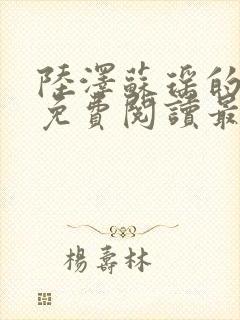 陸澤蘇瑶的
免費閱讀最
楊壽林